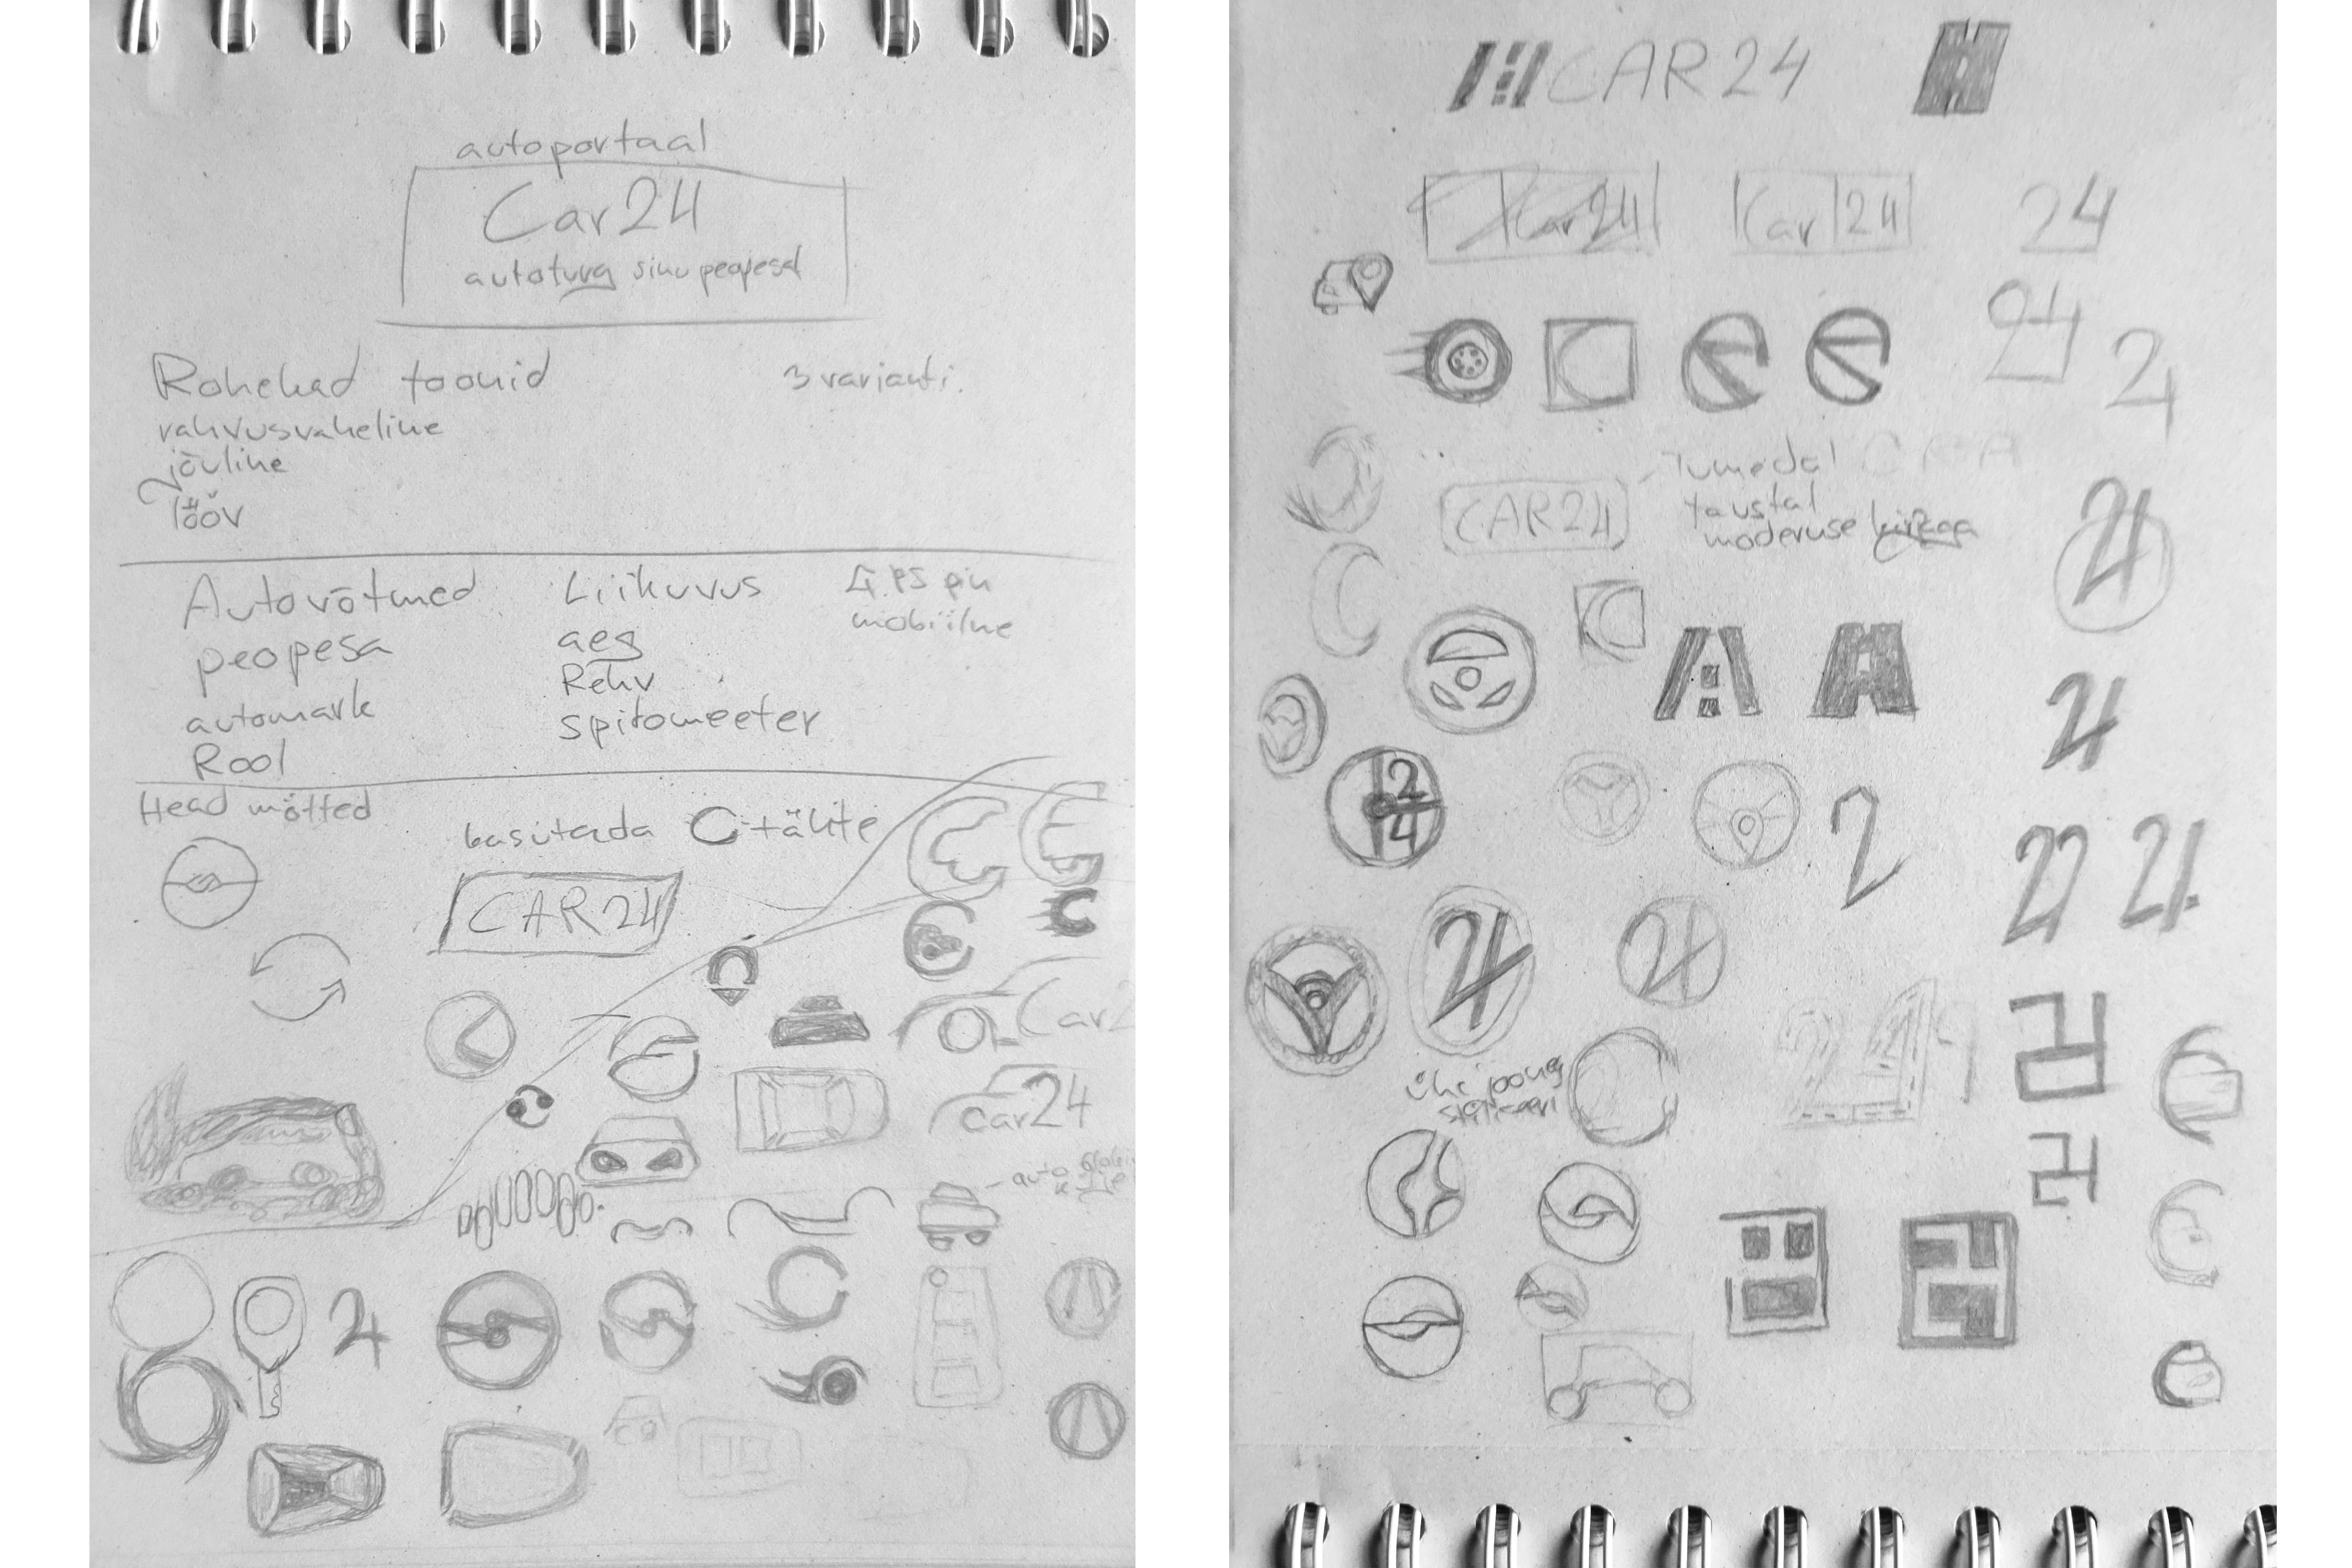 autoportaal
Car24
autoturg sinu peopesal
Rohekad toonid
3 varianti.
rahvusvaheline
jõuline
lööv
Autovõtmed
peopesa
automark
Rool
Liikuvus
aeg
Rehv
spitomeeter
GPS pin
mobiilne
Head mõtted
kasutada C-tähte
CAR24
Car2
Car24
auto
24
CAR24
Car24
Car 24
24
24
24
CAR24
Tumedal
taustal
moderuse kirjaga
24
24
2
4
2
24
24
24